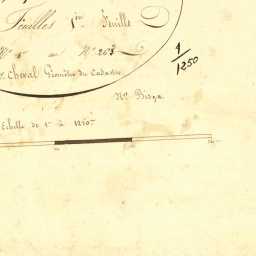 Feuilles 1ère Feuille
N° 1 au N° 263
Cheval Géomètre du Cadastre
1/1250
Echelle de 1 à 1250